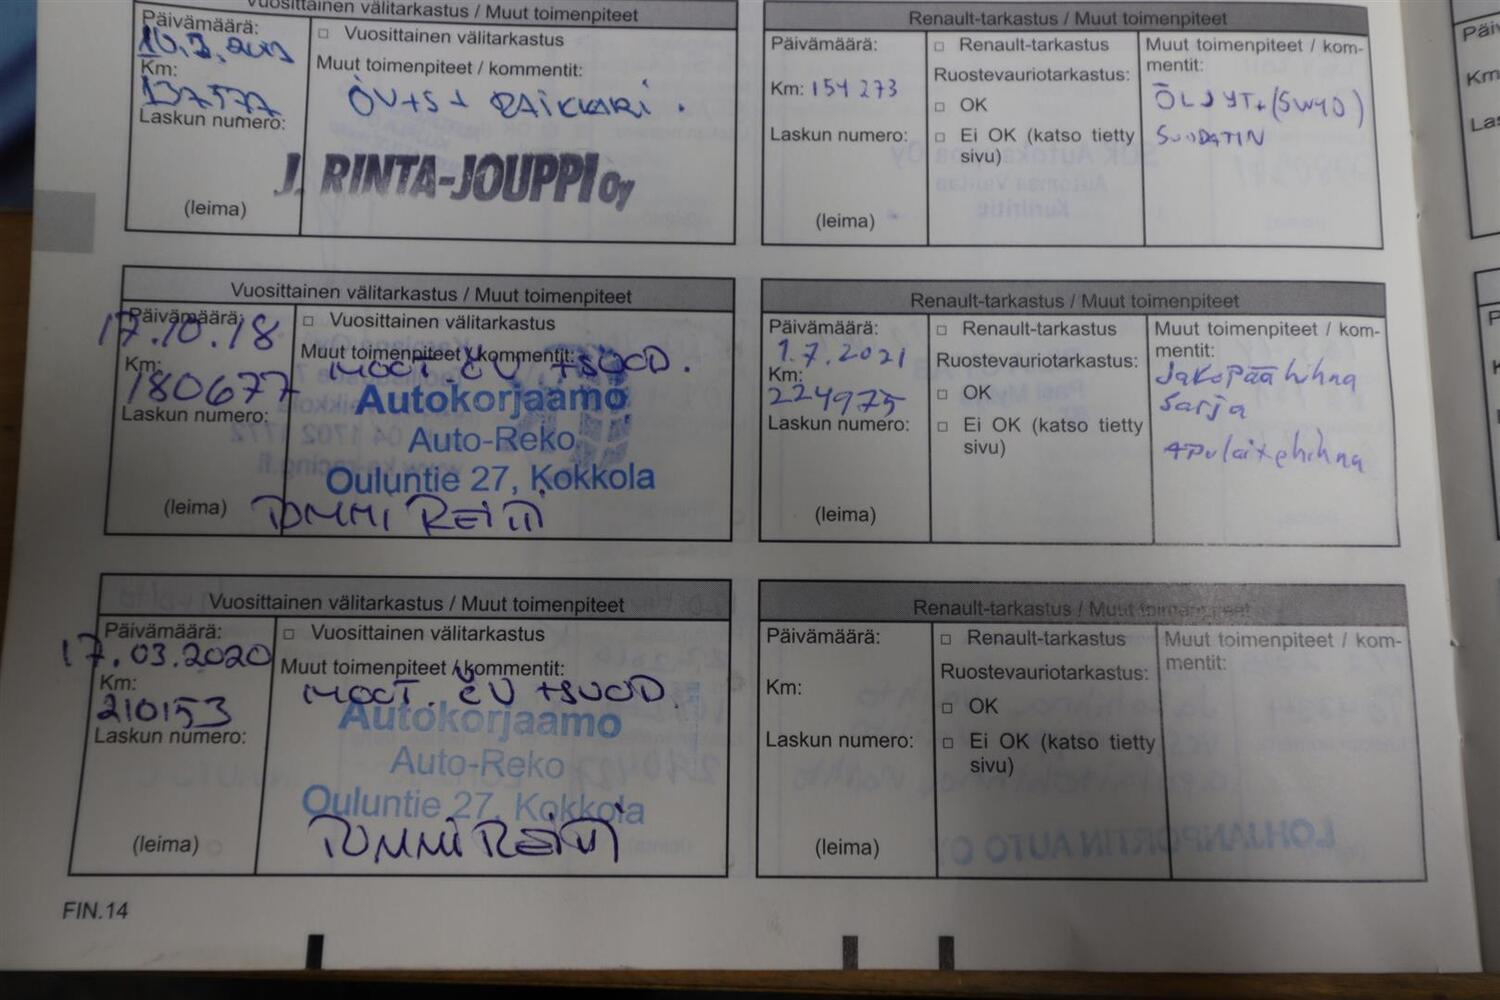 Vuosittainen välitarkastus / Muut toimenpiteet
Päivämäärä:
□ Vuosittainen välitarkastus
Km:
137577
Muut toimenpiteet / kommentit:
ÖV+S +
Laskun numero:
J. RINTA-JOUPPI Oy
(leima)
Renault-tarkastus / Muut toimenpiteet
Päivämäärä:
Km: 154 273
Laskun numero:
(leima)
□ Renault-tarkastus
Ruostevauriotarkastus:
□ OK
□ Ei OK (katso tietty
sivu)
Muut toimenpiteet / kom-
mentit:
ÖLJYT+(5W40)
SUODATIN
Vuosittainen välitarkastus / Muut toimenpiteet
Päivämäärä:
17.10.18
Km:
180677
Laskun numero:
(leima)
□ Vuosittainen välitarkastus
Muut toimenpiteet / kommentit:
MOOT. ÖV +SUOD.
Autokorjaamo
Auto-Reko
Ouluntie 27, Kokkola
TOMMI
Renault-tarkastus / Muut toimenpiteet
Päivämäärä:
1.7.2021
Km:
224975
Laskun numero:
(leima)
□ Renault-tarkastus
Ruostevauriotarkastus:
□ OK
□ Ei OK (katso tietty
sivu)
Muut toimenpiteet / kom-
mentit:
Jakopää hihna
Sarja
Apulaitehihna
Vuosittainen välitarkastus / Muut toimenpiteet
Päivämäärä:
17.03.2020
Km:
210153
Laskun numero:
(leima)
□ Vuosittainen välitarkastus
Muut toimenpiteet / kommentit:
MOOT. ÖV +SUOD.
Autokorjaamo
Auto-Reko
Ouluntie 27, Kokkola
TOMMI
Renault-tarkastus / Muut toimenpiteet
Päivämäärä:
Km:
Laskun numero:
(leima)
□ Renault-tarkastus
Ruostevauriotarkastus:
□ OK
□ Ei OK (katso tietty
sivu)
Muut toimenpiteet / kom-
mentit:
FIN.14